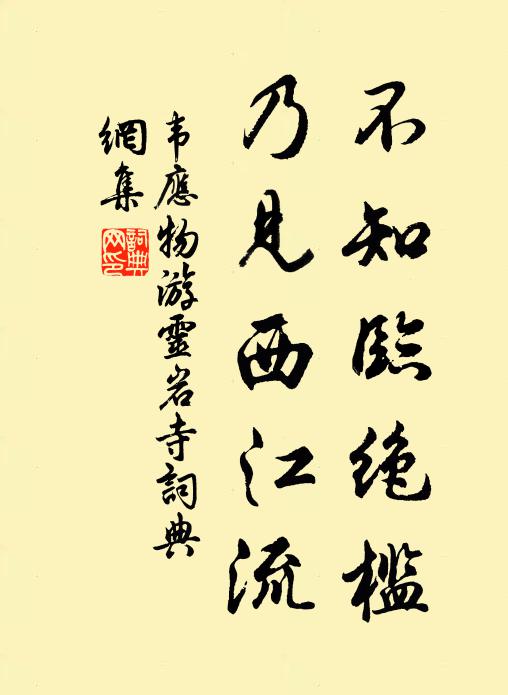 不知臨絶檻
乃見西江流
韦應物游靈岩寺詞典
網集
詞典网印